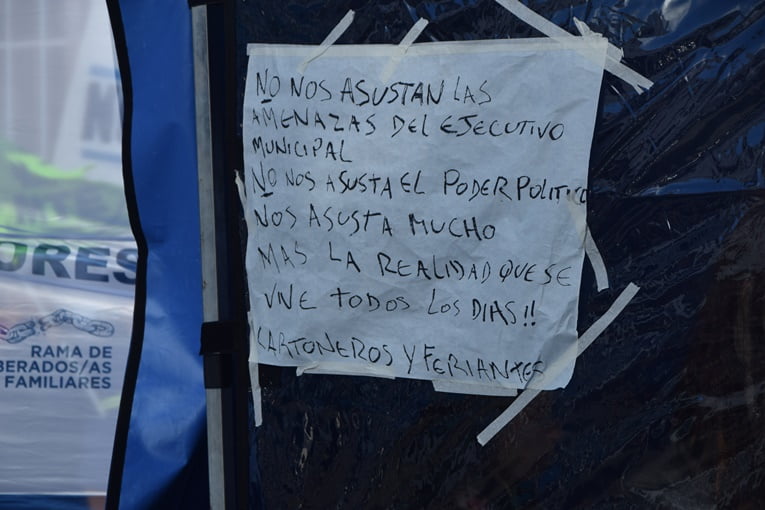 NO NOS ASUSTAN LAS
AMENAZAS DEL EJECUTIVO
MUNICIPAL
NO NOS ASUSTA EL PODER POLITICO
NOS ASUSTA MUCHO
MAS LA REALIDAD QUE SE
VIVE TODOS LOS DIAS!!
CARTONEROS Y FERIANTES
ORES
RAMA DE
BERADOS/AS
FAMILIARES